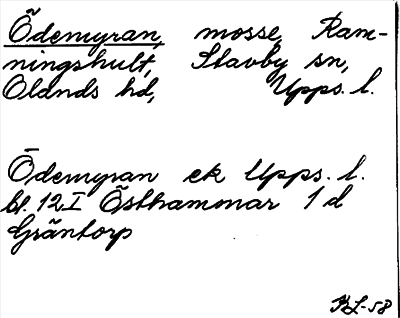 Ödemyran, mosse, Ram-
ningshult, Stavby sn,
Olands hd, Upps. l.
Ödemyran ek Upps. l.
bl. 12 I Östhammar 1 d
Gräntorp
KL-58